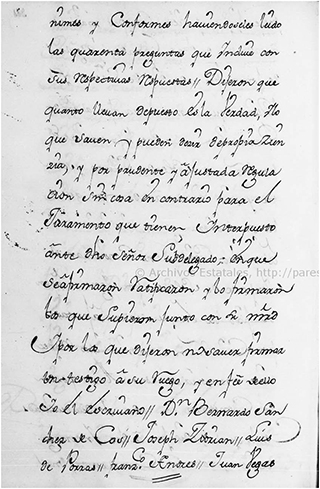 nimes y Conformes haviendoseles leido
las quarenta preguntas que incluie con
sus respectivas respuestas // Dijeron que
quanto llevan depuesto es la verdad, lo
que saven y pueden decir de propia Zien
zia, y por prudente y ajustada regula
cion sin cosa en contrario para el
Juramento que tienen interpuesto
ante dho Señor Subdelegado: en que
se afirmaron ratificaron y lo firmaron
los que supieron junto con
y por los que dijeron no saver firmar
un testigo a su ruego, y en feè de ello
Yo el Escrivano // Dn Bernardo San
chez de Cos // Joseph // Luis
de Porras // Franco Andres // Juan
© Archivos Estatales, http://pares